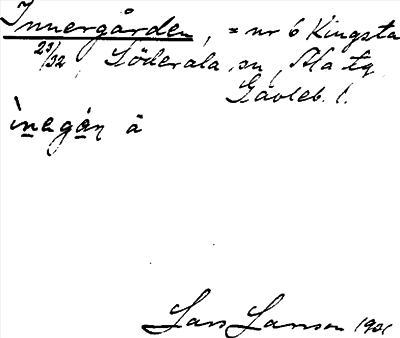 Innergården, = nr 6 Kingsta
23/32 Söderala sn, Ala tg
Gävleb. l.
ìnegán å
Lars Larsson